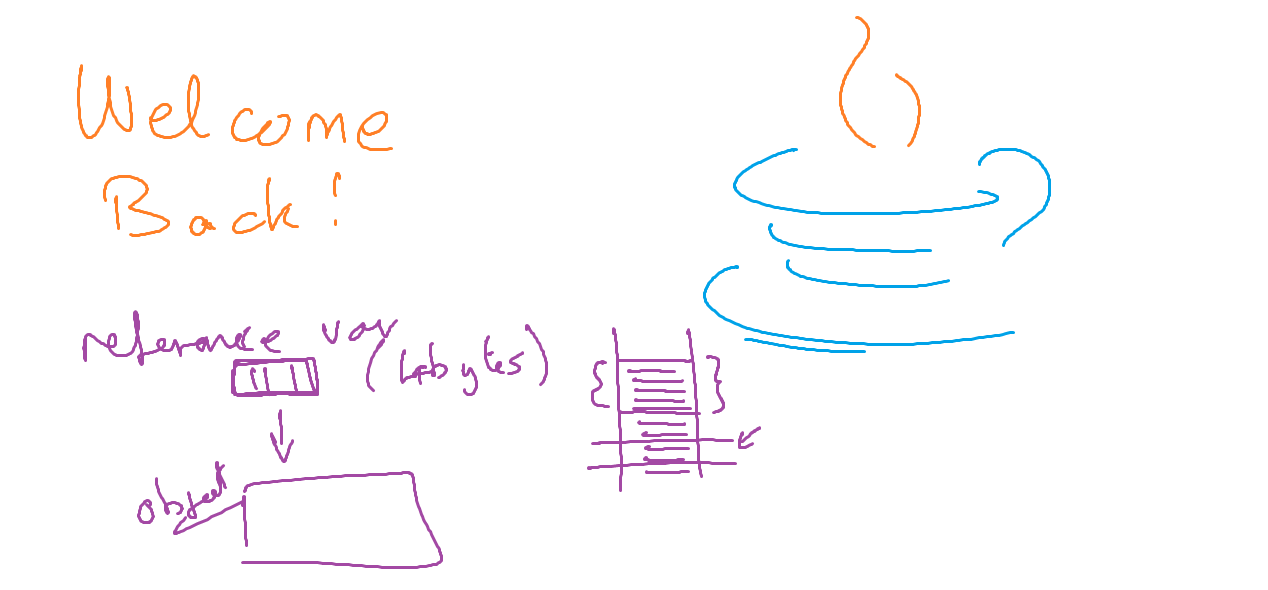 Welcome
Back!
reference var
(4bytes)
object